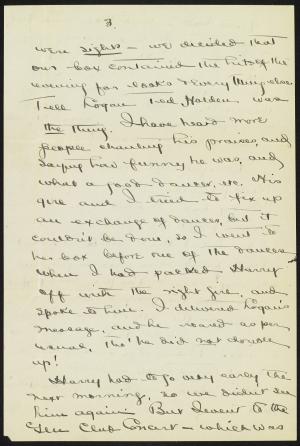 3
were sights – we decided that
our box contained the hits of the
evening for looks & everything else
Tell Logan Ted Holden was
the thing. I have heard more
people chanting his praises, and
saying how funny he was, and
what a good dancer, etc. His
girl and I tried to fix up
an exchange of dances, but it
couldn't be done, so I went to
his box before one of the dances
when I had packed Harry
off with the right girl, and
spoke to him. I delivered Logan's
message, and he roared as per
usual, tho' he did not double
up!
Harry had to go very early the
next morning, so we didn't see
him again. But I went to the
Glee Club Concert – which was